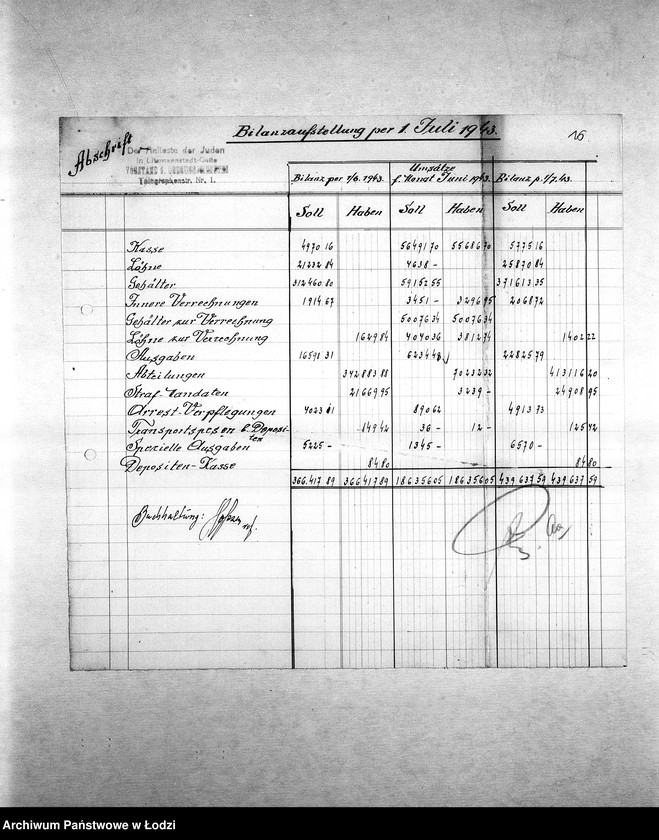 Abschrift
Bilanzaufstellung per 1. Juli 1943.
16
Der Aelteste der Juden
in Litzmannstadt-Getto
Telegraphenstr. Nr. 1.
Bilanz per 1/6. 1943. Umsätze f. Monat Juni 1943. Bilanz p. 1/7.43.
Soll Haben Soll Haben Soll Haben
Kasse 4970 16 56491 70 55686 70 5775 16
Löhne 21232 84 4638 - 25870 84
Gehälter 312460 80 59152 55 371613 35
Innere Verrechnungen 1914 67 3451 - 3296 95 2068 72
Gehälter zur Verrechnung 50076 34 50076 34
Löhne zur Verrechnung 1629 84 4040 36 3812 74 1402 22
Ausgaben 16591 31 6234 48 22825 79
Abteilungen 342883 88 70232 32 413116 20
Straf-Mandaten 21669 95 3239 - 24908 95
Arrest-Verpflegungen 4023 01 890 62 4913 73
Transportspesen b. Depositen 149 42 36 - 12 - 125 42
Spezielle Ausgaben 5225 - 1345 - 6570 -
Depositen-Kasse 84 80 84 80
366.417 89 366417 89 186356 05 186356 05 439.637 59 439.637 59
Buchhaltung:
Archiwum Państwowe w Łodzi